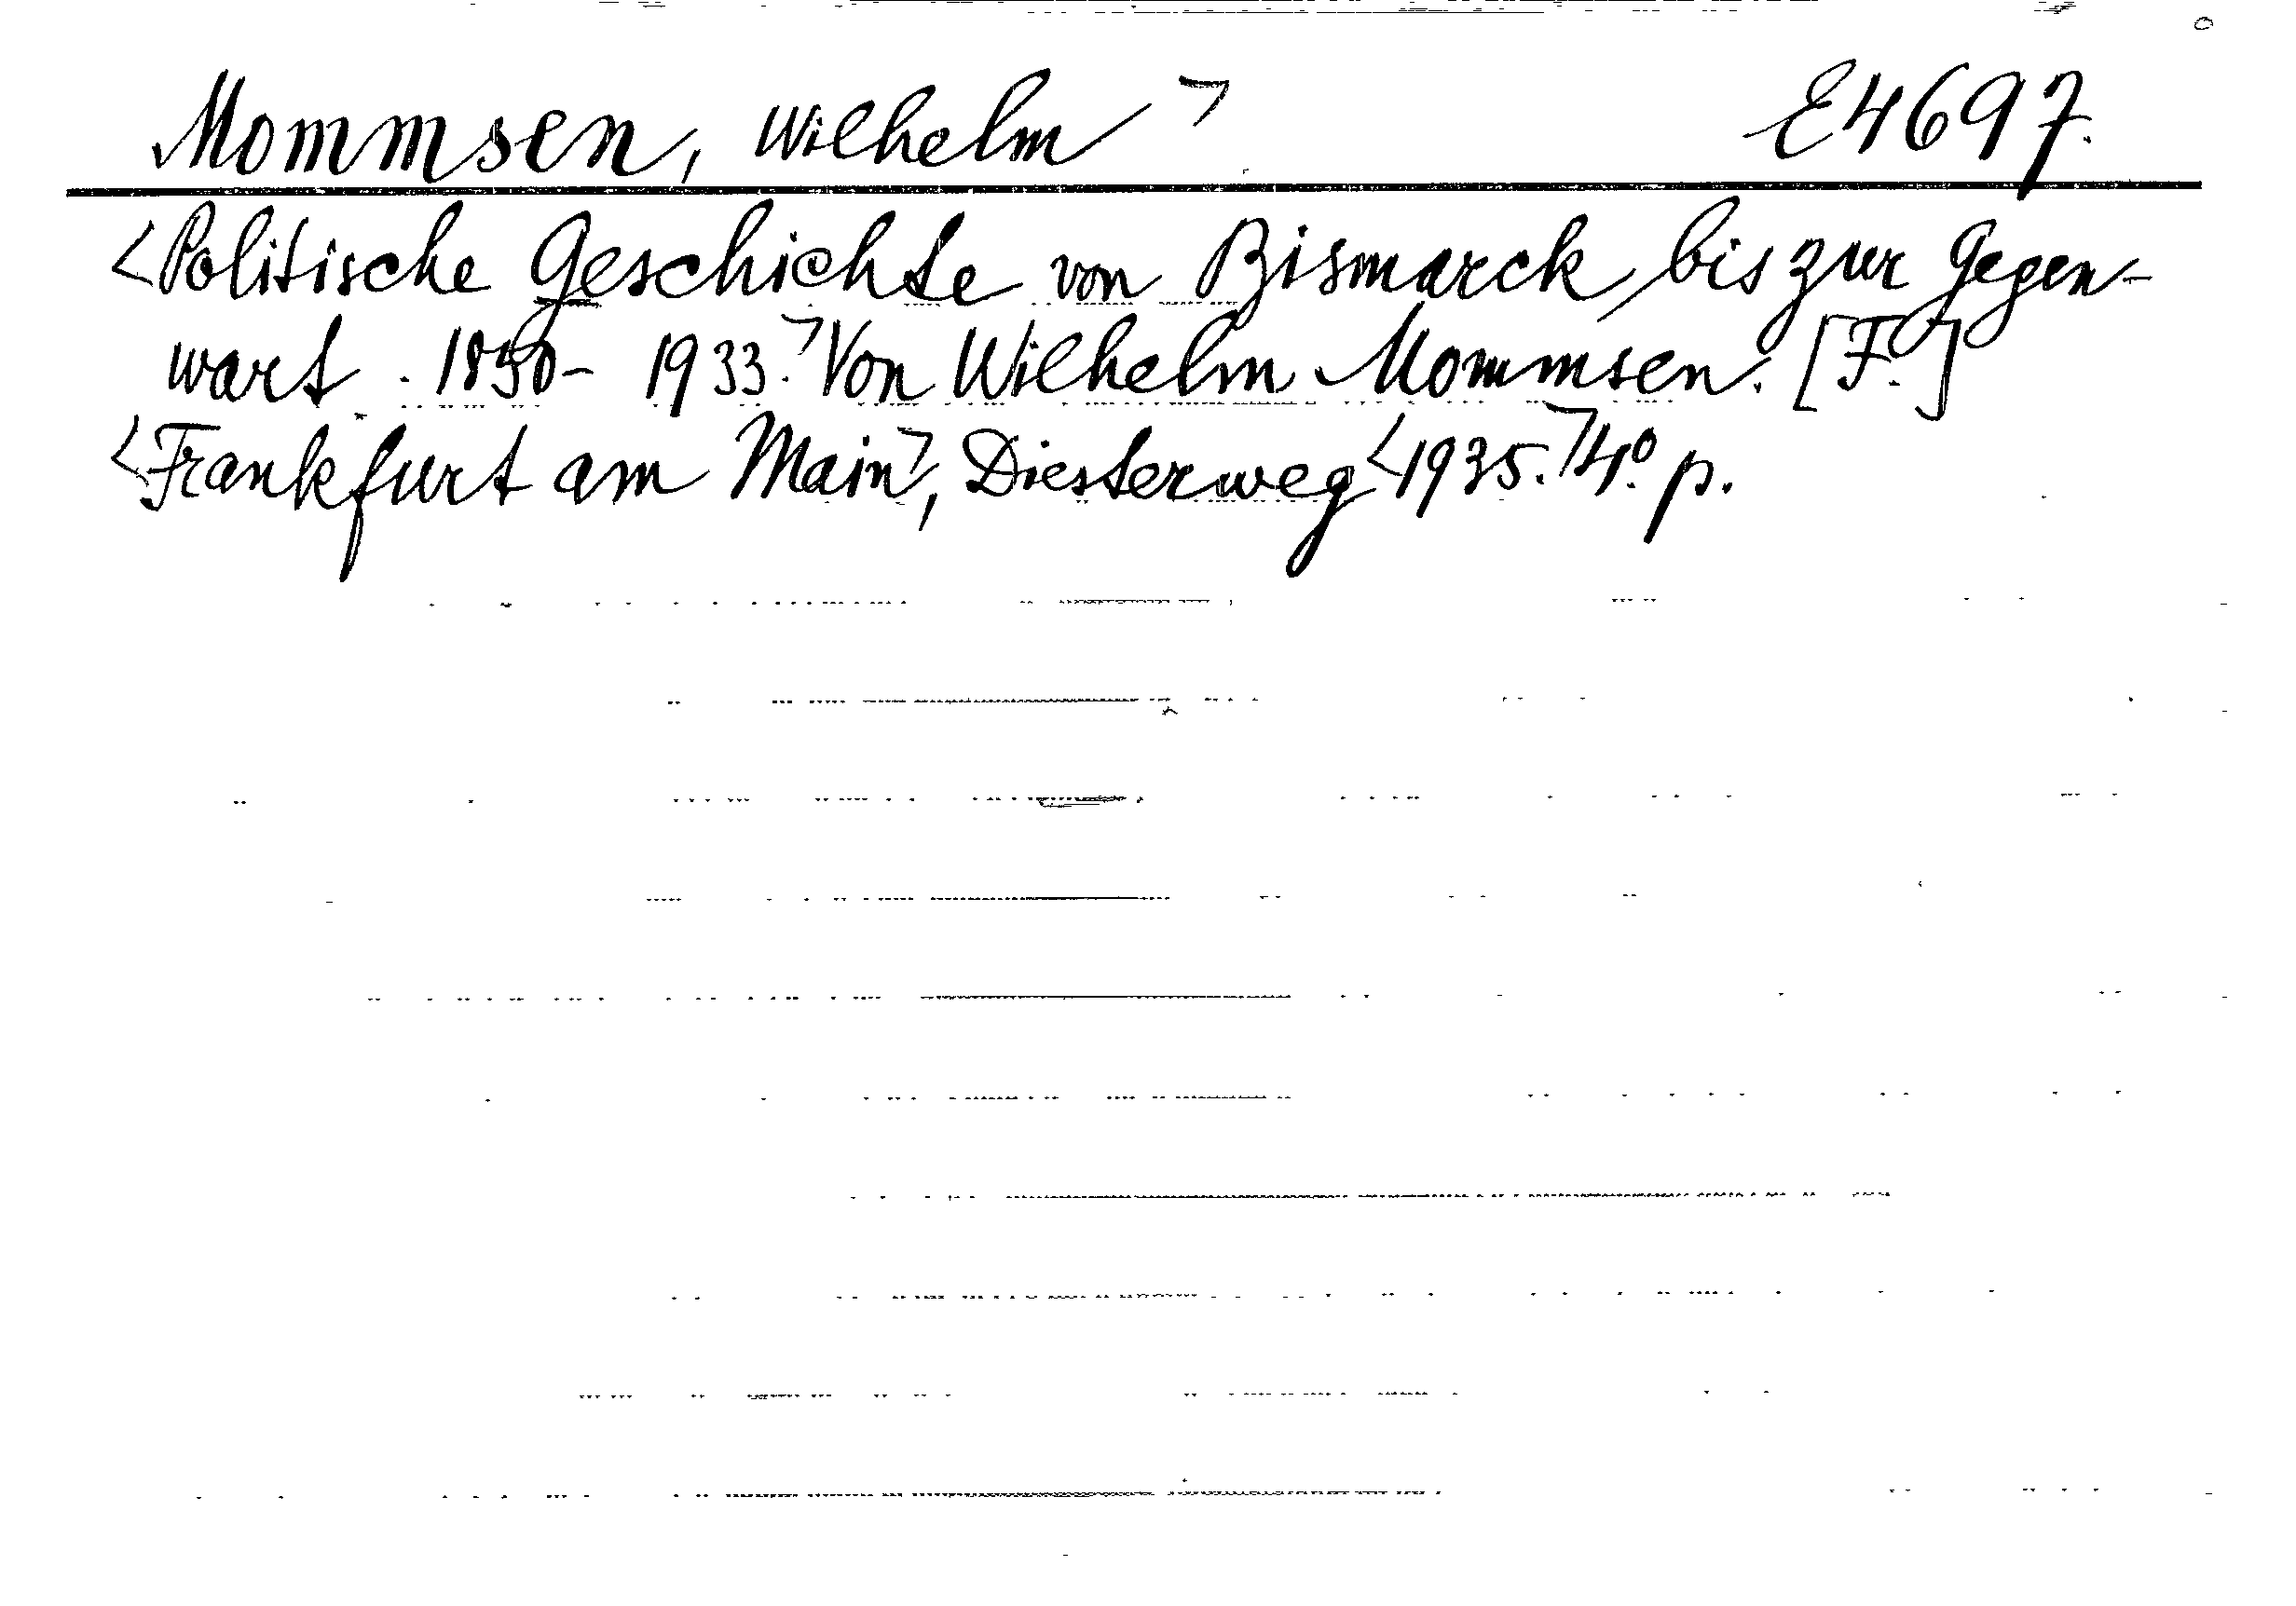 Mommsen, Wilhelm ⌝ E4697.
<Politische Geschichte von Bismarck bis zur Gegen-
wart. 1850-1933.⌝ Von Wilhelm Mommsen. [F.]
<Frankfurt am Main⌝, Diesterweg <1935.⌝ 4.° p.